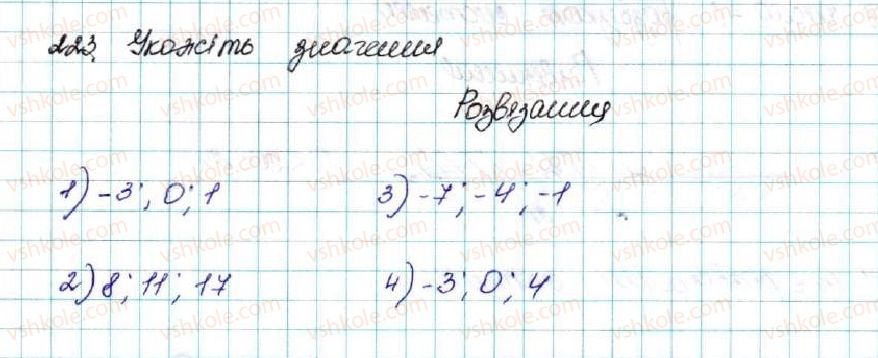 223. Укажіть значення
Розвязання
1) -3; 0; 1
3) -7; -4; -1
2) 8; 11; 17
4) -3; 0; 4